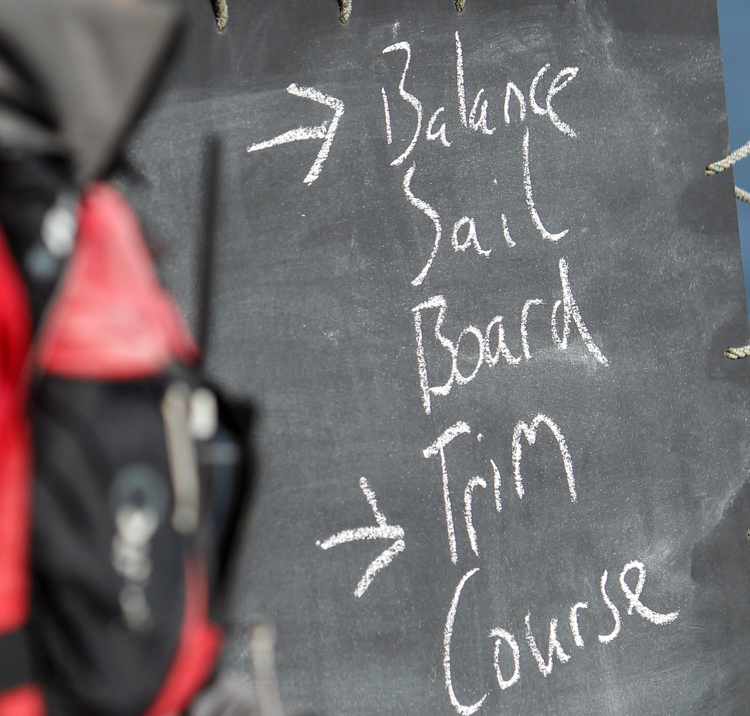 → Balance
Sail
Board
→ Trim
Course